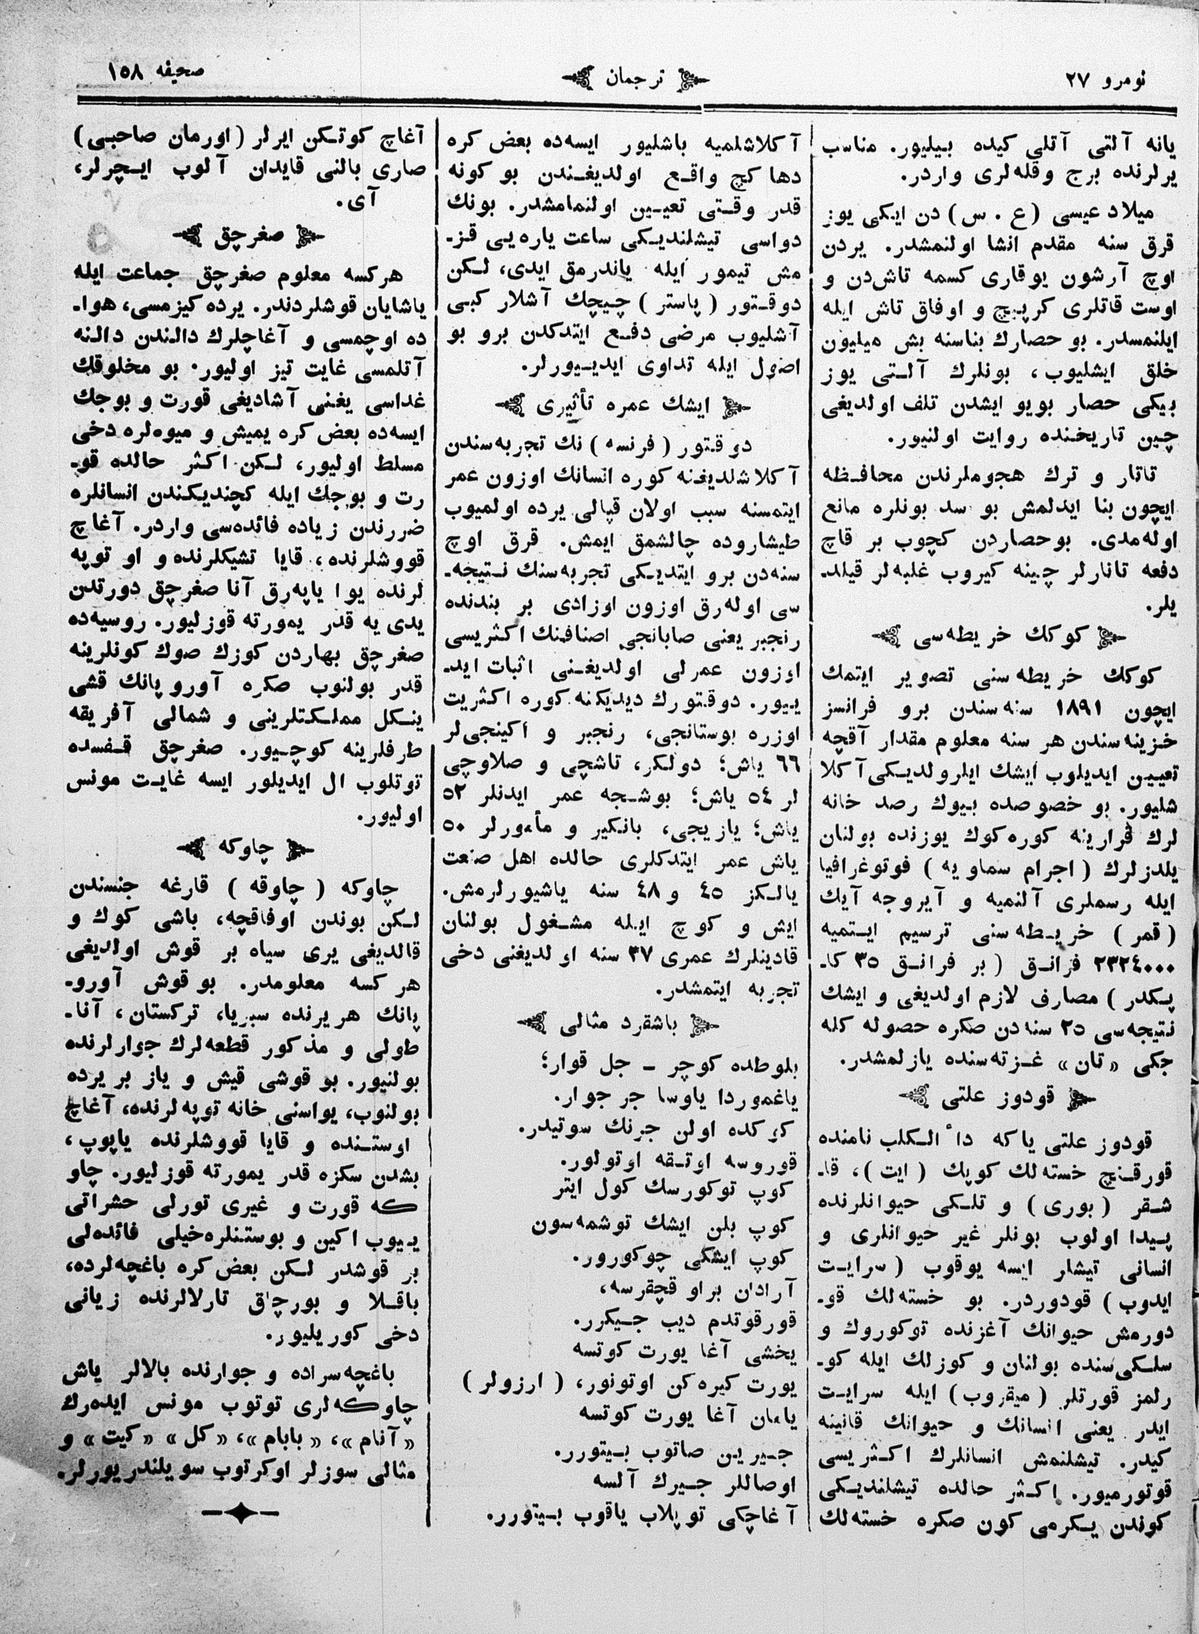 نومرو ٢٧
ترجمان
صحیفه ١٥٨
یانه آلتی آتلی کیده بیلیور. مناسب
یرلرنده برج وقله‌لری واردر.
میلاد عیسی (ع . س) دن ایکی یوز
قرق سنه مقدم انشا اولنمشدر. یردن
اوچ آرشون یوقاری کسمه تاش‌دن و
اوست قاتلری کرپیچ و اوفاق تاش ایله
ایلنمسدر. بو حصارك بناسنه بش میلیون
خلق ایشلیوب، بونلرك آلتی یوز
بیکی حصار بویو ایشدن تلف اولدیغی
چین تاریخنده روایت اولنیور.
تاتار و ترك هجوملرندن محافظه
ایچون بنا ایدلمش بو سد بونلره مانع
اوله‌مدی. بوحصاردن کچوب بر قاچ
دفعه تاتارلر چینه کیروب غلبه‌لر قیلد-
یلر.
کوکك خریطه‌سی
کوکك خریطه‌سنی تصویر ایتمك
ایچون ١٨٩١ سنه‌سندن برو فرانسز
خزینه‌سندن هر سنه معلوم مقدار آقچه
تعیین ایدیلوب ایشك ایلرولدیکی آکلا
شلیور. بو خصوصده بیوك رصد خانه
لرك قرارینه کوره‌کوك یوزنده بولنان
یلدزلرك (اجرام سماویه) فوتوغرافیا
ایله رسملری آلنمیه و آیروجه آیك
(قمر) خریطه‌سنی ترسیم ایتمیه
٢٣٢٤٠٠٠ فرانق (بر فرانق ٣٥ کا-
پکدر) مصارف لازم اولدیغی و ایشك
نتیجه‌سی ٢٥ سنادن صکره حصوله کله
جکی «تان» غزته‌سنده یازلمشدر.
قودوز علتی
قودوز علتی یاکه داء الکلب نامنده
قورقنچ خسته‌لك کوپك (ایت)، قا-
شقر (بوری) و تلکی حیوانلرنده
پیدا اولوب بونلر غیر حیوانلری و
انسانی تیشار ایسه یوقوب (سرایت
ایدوب) قودوردر. بو خسته‌لك قو-
دورمش حیوانك آغزنده توکوروك و
سلکی‌سنده بولنان و کوزلك ایله کو-
رلمز قورتلر (میقروب) ایله سرایت
ایدر یعنی انسانك و حیوانك قانینه
کیدر. تیشلنمش انسانلرك اکثریسی
قوتورمیور. اکثر حالده تیشلندیکی
کوندن یکرمی کون صکره خسته‌لك
آکلاشلمیه باشلیور ایسه‌ده بعض کره
دها کچ واقع اولدیغندن بو کونه
قدر وقتی تعیین اولنمامشدر. بونك
دواسی تیشلندیکی ساعت یاره‌یی قز-
مش تیمور ایله یاندرمق ایدی، لکن
دوقتور (پاستر) چیچك آشلار کبی
آشلیوب مرضی دفع ایتدکدن برو بو
اصول ایله تداوی ایدییورلر.
ایشك عمره تأثیری
دوقتور (فرنسه) نك تجربه‌سندن
آکلاشلدیغنه کوره انسانك اوزون عمر
ایتمسنه سبب اولان قپالی یرده اولمیوب
طیشاروده چالشمق ایمش. قرق اوچ
سنه‌دن برو ایتدیکی تجربه‌سنك نتیجه-
سی اوله‌رق اوزون اوزادی بر بندنده
رنجبر یعنی صابانجی اصنافینك اکثریسی
اوزون عمرلی اولدیغنی اثبات اید-
ییور. دوقتورك دیدیکنه کوره اکثریت
اوزره بوستانجی، رنجبر و اکینجی‌لر
٦٦ یاش؛ دولکر، تاشچی و صلاوچی
لر ٥٤ یاش؛ بوشجه عمر ایدنلر ٥٢
یاش؛ یازیجی، بانکیر و مأمورلر ٥٠
یاش عمر ایتدکلری حالده اهل صنعت
یالکز ٤٥ و ٤٨ سنه یاشیورلرمش.
ایش و کوچ ایله مشغول بولنان
قادینلرك عمری ٣٧ سنه اولدیغنی دخی
تجربه ایتمشدر.
باشقرد مثالی
بلوطده کوچر - جل قوار؛
یاغموردا یاوسا جر جوار.
کرکده اولن جرنك سوتیدر.
قوروسه اوتقه اوتولور.
کوپ توکورسك کول ایتر
کوپ بلن ایشك توشمه‌سون
کوپ ایشکی چوکورور.
آرادان براو قچقرسه،
قورقوتدم دیب جیکرر.
یخشی آغا یورت کوتسه
یورت کیره‌کن اوتونور، (ارزولر)
یامان آغا یورت کوتسه
جیرین صاتوب بیتورر.
اوصاللر جیرك آلسه
آغاچکی توپلاب یاقوب بیتورر.
آغاچ کوتکن ایرلر (اورمان صاحبی)
صاری بالنی قایدان آلوب ایچرلر،
آی.
صغرچق
هرکسه معلوم صغرچق جماعت ایله
یاشایان قوشلردندر. یرده کیزمسی، هوا-
ده اوچمسی و آغاچلرك دالندن دالنه
آتلمسی غایت تیز اولیور. بو مخلوقك
غداسی یغنی آشادیغی قورت و بوجك
ایسه‌ده بعض کره یمیش و میوه‌لره دخی
مسلط اولیور، لکن اکثر حالده قو-
رت و بوجك ایله کچندیکندن انسانلره
ضررندن زیاده فائده‌سی واردر. آغاچ
قووشلرنده، قایا تشیکلرنده و او توپه
لرنده یوا یاپه‌رق آنا صغرچق دورتدن
یدی یه قدر یمورته قوزلیور. روسیه‌ده
صغرچق بهاردن کوزك صوك کونلرینه
قدر بولنوب صکره آوروپانك قشی
ینکل مملکتلرینی و شمالی آفریقه
طرفلرینه کوچیور. صغرچق قفسده
توتلوب ال ایدیلور ایسه غایت مونس
اولیور.
چاوکه
چاوکه (چاوقه) قارغه جنسندن
لکن بوندن اوفاقچه، باشی کوك و
قالدیغی یری سیاه بر قوش اولدیغی
هر کسه معلومدر. بو قوش آورو-
پانك هریرنده سبریا، ترکستان، آنا-
طولی و مذکور قطعه‌لرك جوارلرنده
بولنیور. بو قوشی قیش و یاز بر یرده
بولنوب، یواسنی خانه توپه‌لرنده، آغاچ
اوستنده و قایا قووشلرنده یاپوب،
بشدن سکزه قدر یمورته قوزلیور. چاو
که قورت و غیری تورلی حشراتی
ییوب اکین و بوستنلره‌خیلی فائده‌لی
بر قوشدر لکن بعض کره باغچه‌لرده،
باقلا و بورچاق تارلالرنده زیانی
دخی کوریلیور.
باغچه‌سراده و جوارنده بالالر یاش
چاوکه‌لری توتوب مونس ایده‌رك
«آنام»، «بابام»، «کل» «کیت» و
مثالی سوزلر اوکرتوب سویلندریورلر.